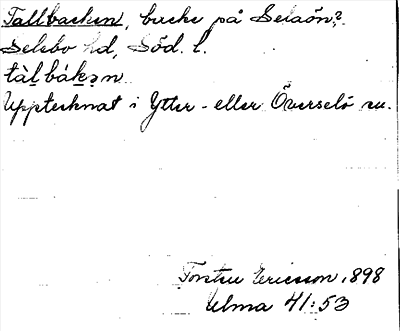 Tallbacken, backe på Selaön?.
Selebo hd, Söd. l.
tàl̲bák̲ə̲n
Upptecknat i Ytter- eller Överselö sn.
Torsten Ericsson, 1898
Ulma 41:53